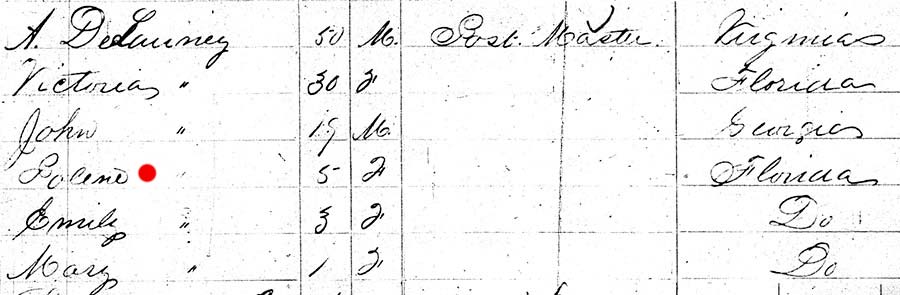 A. DeLauney 50 M. Post. Master. Virginia
Victoria " 30 F Florida
John " 19 M. Georgia
Polene " 5 F Florida
Emily " 3 F Do
Mary " 1 F Do